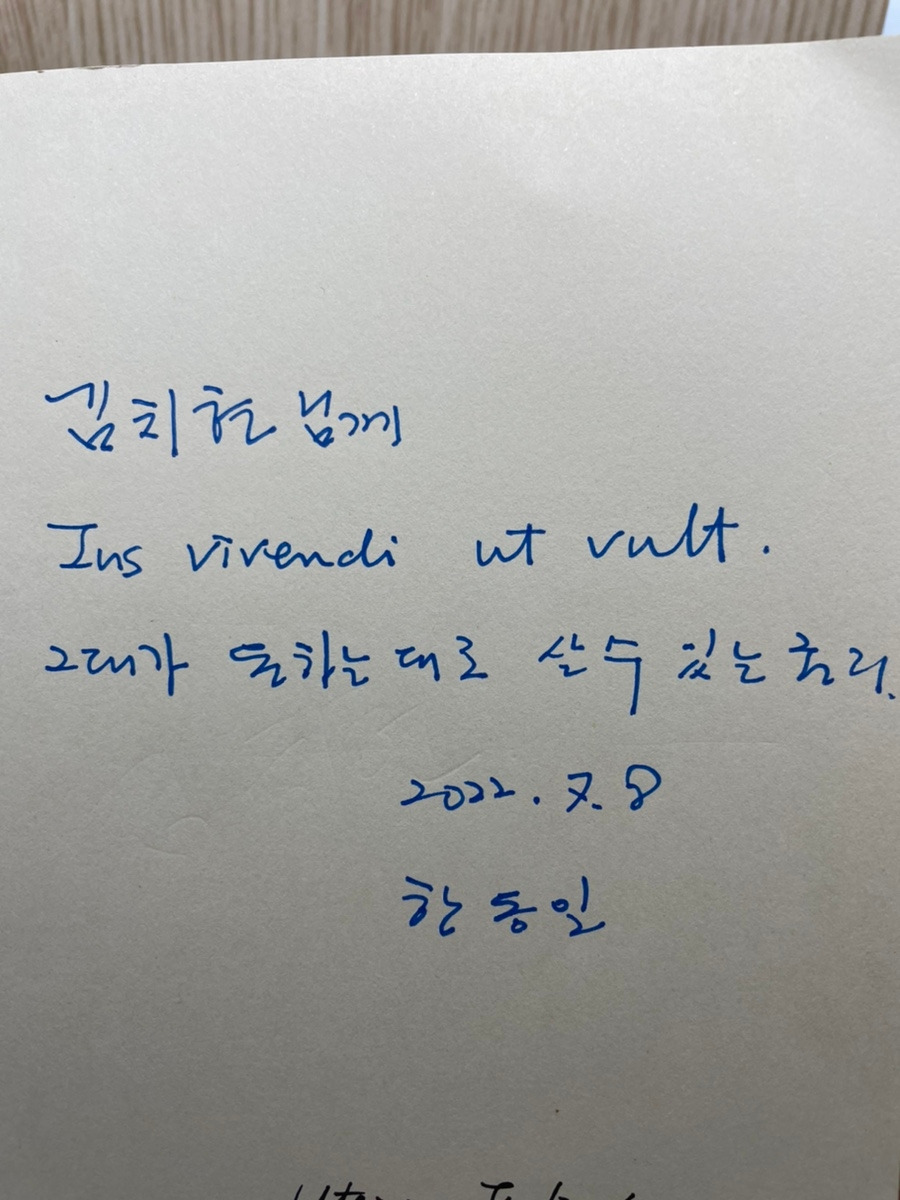 김치현 님께
Ius vivendi ut vult.
그대가 원하는 대로 살 수 있는 권리.
2022. 7. 8
한동일